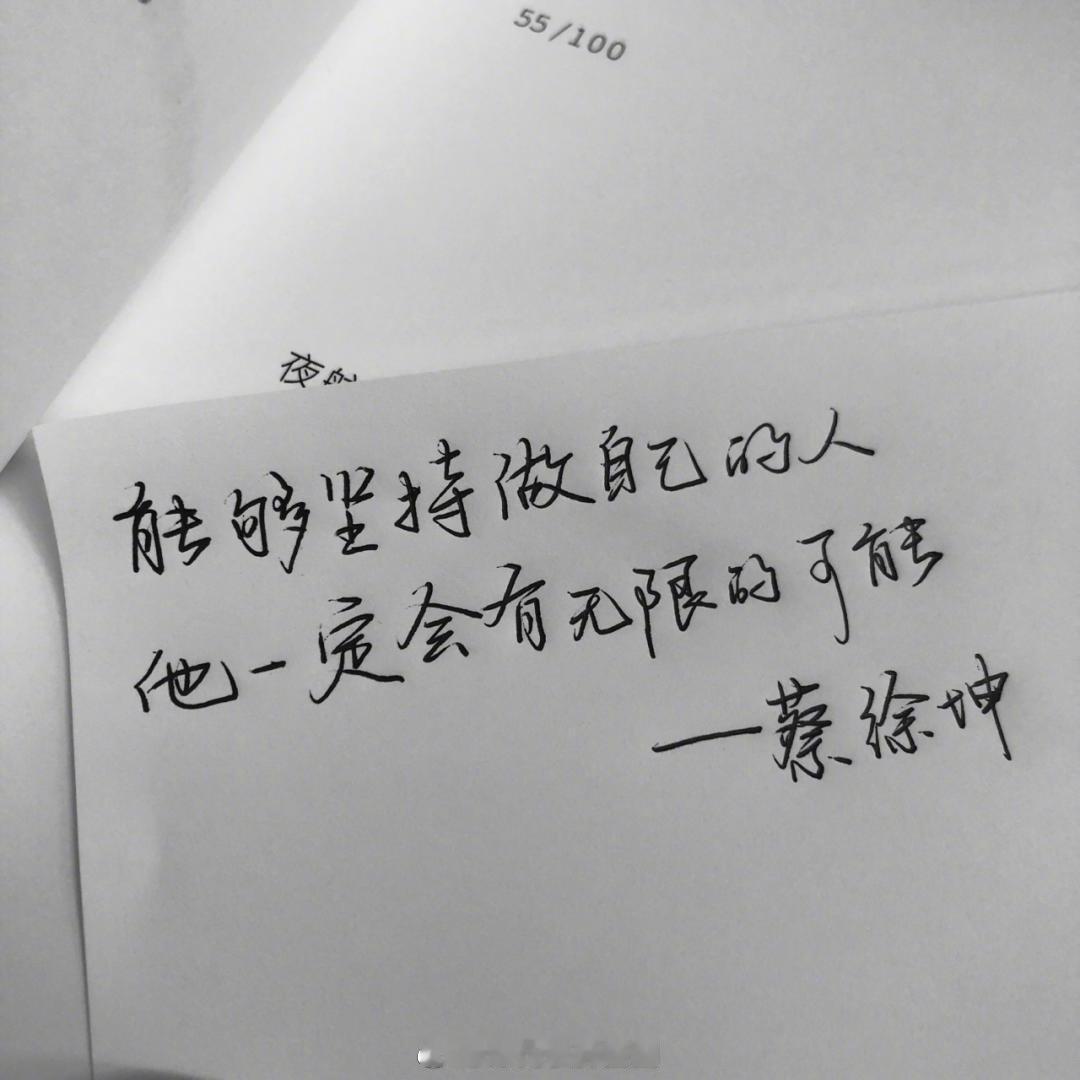 55/100
夜
能够坚持做自己的人
他一定会有无限的可能
—蔡徐坤